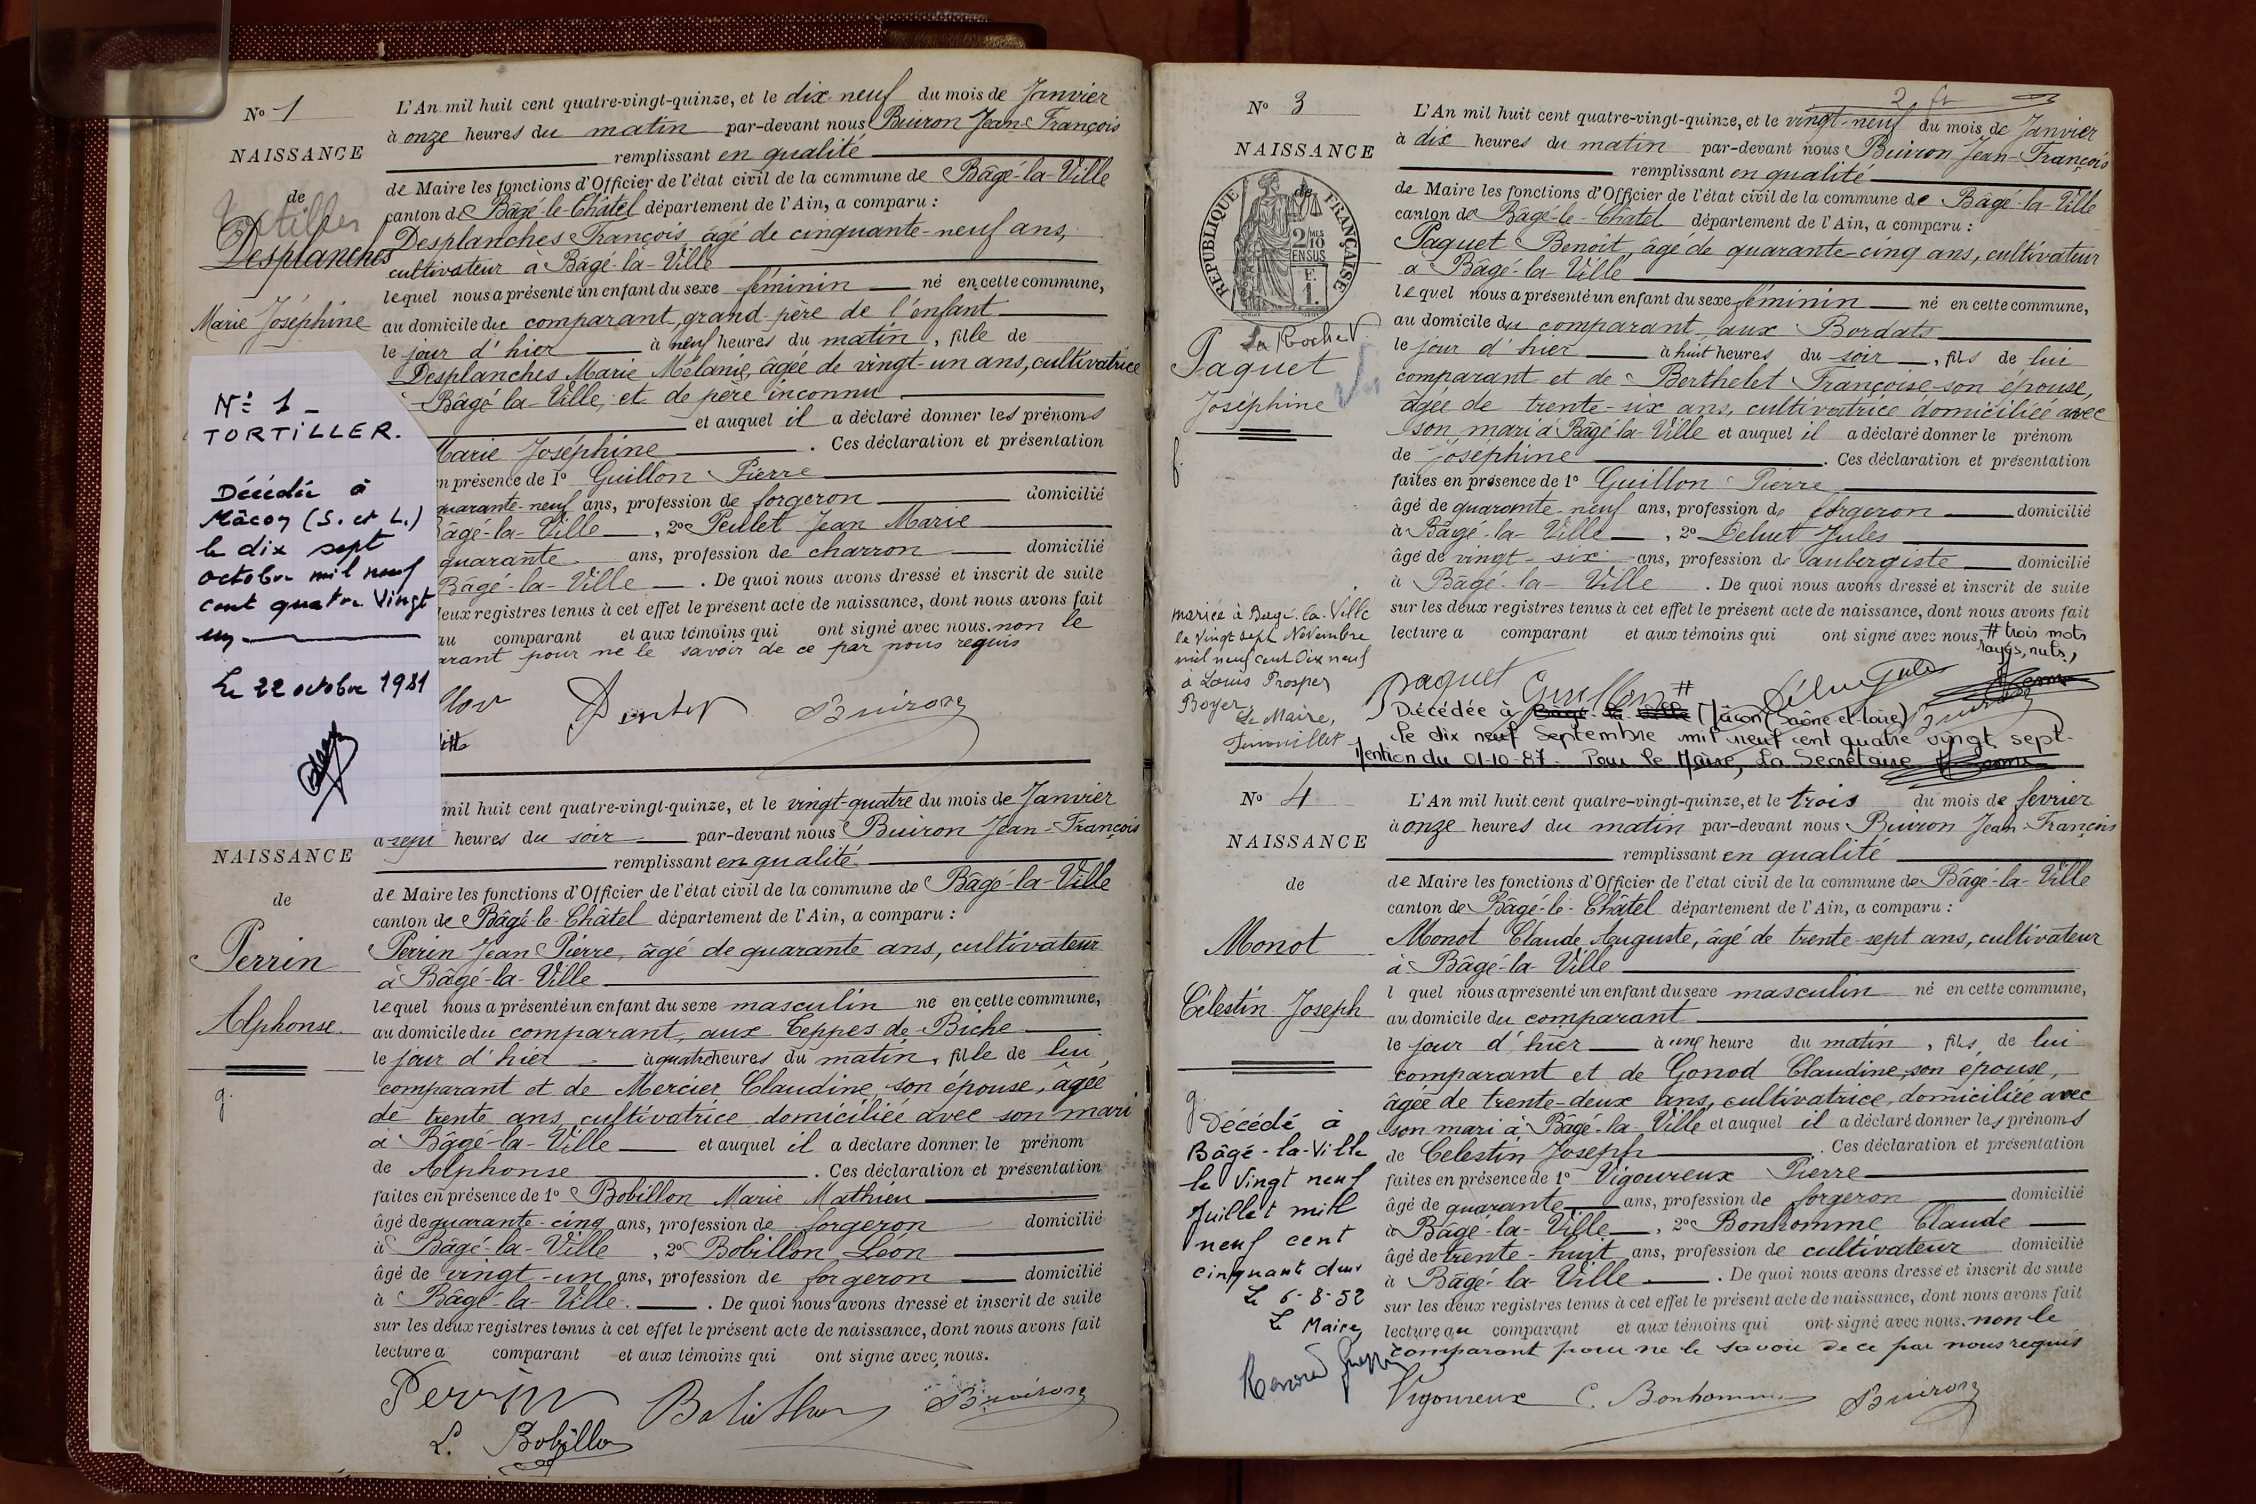 N° 1
NAISSANCE
de
Desplanches
Marie Joséphine
N° 1 -
TORTILLER.
Décédée à
Mâcon (S. et L.)
le dix sept
octobre mil neuf
cent quatre vingt
un
Le 22 octobre 1981
L'An mil huit cent quatre-vingt-quinze, et le dix neuf du mois de Janvier
à onze heures du matin par-devant nous Buiron Jean-François
remplissant en qualité
de Maire les fonctions d'Officier de l'état civil de la commune de Bâgé-la-Ville
canton de Bâgé-le-Châtel département de l'Ain, a comparu :
Desplanches François âgé de cinquante-neuf ans,
cultivateur à Bâgé-la-Ville
lequel nous a présenté un enfant du sexe féminin né en cette commune,
au domicile du comparant, grand-père de l'enfant
le jour d'hier à neuf heures du matin, fille de
Desplanches Marie Mélanie, âgée de vingt-un ans, cultivatrice
Bâgé la-Ville, et de père inconnu
et auquel il a déclaré donner les prénoms
Marie Joséphine . Ces déclaration et présentation
en présence de 1° Guillon Pierre
quarante-neuf ans, profession de forgeron domicilié
Bâgé-la-Ville , 2° Peulet Jean Marie
quarante ans, profession de charron domicilié
Bâgé-la-Ville . De quoi nous avons dressé et inscrit de suite
deux registres tenus à cet effet le présent acte de naissance, dont nous avons fait
au comparant et aux témoins qui ont signé avec nous. non le
arant pour ne le savoir de ce par nous requis
Buiron
NAISSANCE
de
Perrin
Alphonse
g.
mil huit cent quatre-vingt-quinze, et le vingt-quatre du mois de Janvier
à sept heures du soir par-devant nous Buiron Jean-François
remplissant en qualité
de Maire les fonctions d'Officier de l'état civil de la commune de Bâgé-la-Ville
canton de Bâgé-le-Châtel département de l'Ain, a comparu :
Perrin Jean Pierre, âgé de quarante ans, cultivateur
à Bâgé-la-Ville
lequel nous a présenté un enfant du sexe masculin né en cette commune,
au domicile du comparant, aux Teppes de Biche
le jour d'hier à quatre heures du matin, fille de lui
comparant et de Mercier Claudine, son épouse, âgée
de trente ans, cultivatrice, domiciliée avec son mari
à Bâgé-la-Ville et auquel il a déclaré donner le prénom
de Alphonse . Ces déclaration et présentation
faites en présence de 1° Bobillon Marie Mathieu
âgé de quarante-cinq ans, profession de forgeron domicilié
à Bâgé-la-Ville , 2° Bobillon Léon
âgé de vingt-un ans, profession de forgeron domicilié
à Bâgé-la-Ville . De quoi nous avons dressé et inscrit de suite
sur les deux registres tenus à cet effet le présent acte de naissance, dont nous avons fait
lecture a comparant et aux témoins qui ont signé avec nous.
Perrin Bobillon Buiron
L. Bobillon
N° 3
NAISSANCE
de
RÉPUBLIQUE FRANÇAISE
2 MES 10 EN SUS
Paquet
Joséphine
f.
mariée à Bâgé-la-Ville
le vingt sept Novembre
mil neuf cent Dix neuf
à Louis Prosper
Boyer
Le Maire,
2 fr
L'An mil huit cent quatre-vingt-quinze, et le vingt-neuf du mois de Janvier
à dix heures du matin par-devant nous Buiron Jean-François
remplissant en qualité
de Maire les fonctions d'Officier de l'état civil de la commune de Bâgé-la-Ville
canton de Bâgé-le-Châtel département de l'Ain, a comparu :
Paquet Benoit, âgé de quarante-cinq ans, cultivateur
à Bâgé-la-Ville
lequel nous a présenté un enfant du sexe féminin né en cette commune,
au domicile du comparant, aux Bordats
le jour d'hier à huit heures du soir, fils de lui
comparant et de Berthelet Françoise son épouse,
âgée de trente-six ans, cultivatrice, domiciliée avec
son mari à Bâgé-la-Ville et auquel il a déclaré donner le prénom
de Joséphine . Ces déclaration et présentation
faites en présence de 1° Guillon Pierre
âgé de quarante-neuf ans, profession de forgeron domicilié
à Bâgé-la-Ville , 2° Deluet Jules
âgé de vingt-six ans, profession de aubergiste domicilié
à Bâgé-la-Ville . De quoi nous avons dressé et inscrit de suite
sur les deux registres tenus à cet effet le présent acte de naissance, dont nous avons fait
lecture a comparant et aux témoins qui ont signé avec nous # trois mots
rayés, nuls,
Paquet Guillon #
Décédée à Bâgé-la-Ville Mâcon (Saône-et-Loire) Buiron
le dix neuf Septembre mil neuf cent quatre vingt sept-
Mention du 01-10-87. Pour le Maire, La Secrétaire
N° 4
NAISSANCE
de
Monot
Célestin Joseph
g.
Décédé à
Bâgé-la-Ville
le Vingt neuf
Juillet mil
neuf cent
cinquante deux
Le 6-8-52
Le Maire,
L'An mil huit cent quatre-vingt-quinze, et le trois du mois de février
à onze heures du matin par-devant nous Buiron Jean-François
remplissant en qualité
de Maire les fonctions d'Officier de l'état civil de la commune de Bâgé-la-Ville
canton de Bâgé-le-Châtel département de l'Ain, a comparu :
Monot Claude Auguste, âgé de trente-sept ans, cultivateur
à Bâgé-la-Ville
l quel nous a présenté un enfant du sexe masculin né en cette commune,
au domicile du comparant
le jour d'hier à une heure du matin, fils de lui
comparant et de Gonod Claudine, son épouse,
âgée de trente-deux ans, cultivatrice, domiciliée avec
son mari à Bâgé-la-Ville et auquel il a déclaré donner les prénoms
de Célestin Joseph . Ces déclaration et présentation
faites en présence de 1° Vigoureux Pierre
âgé de quarante ans, profession de forgeron domicilié
à Bâgé-la-Ville , 2° Bonhomme Claude
âgé de trente-huit ans, profession de cultivateur domicilié
à Bâgé-la-Ville . De quoi nous avons dressé et inscrit de suite
sur les deux registres tenus à cet effet le présent acte de naissance, dont nous avons fait
lecture au comparant et aux témoins qui ont signé avec nous. non le
comparant pour ne le savoir de ce par nous requis
Vigoureux C. Bonhomme Buiron